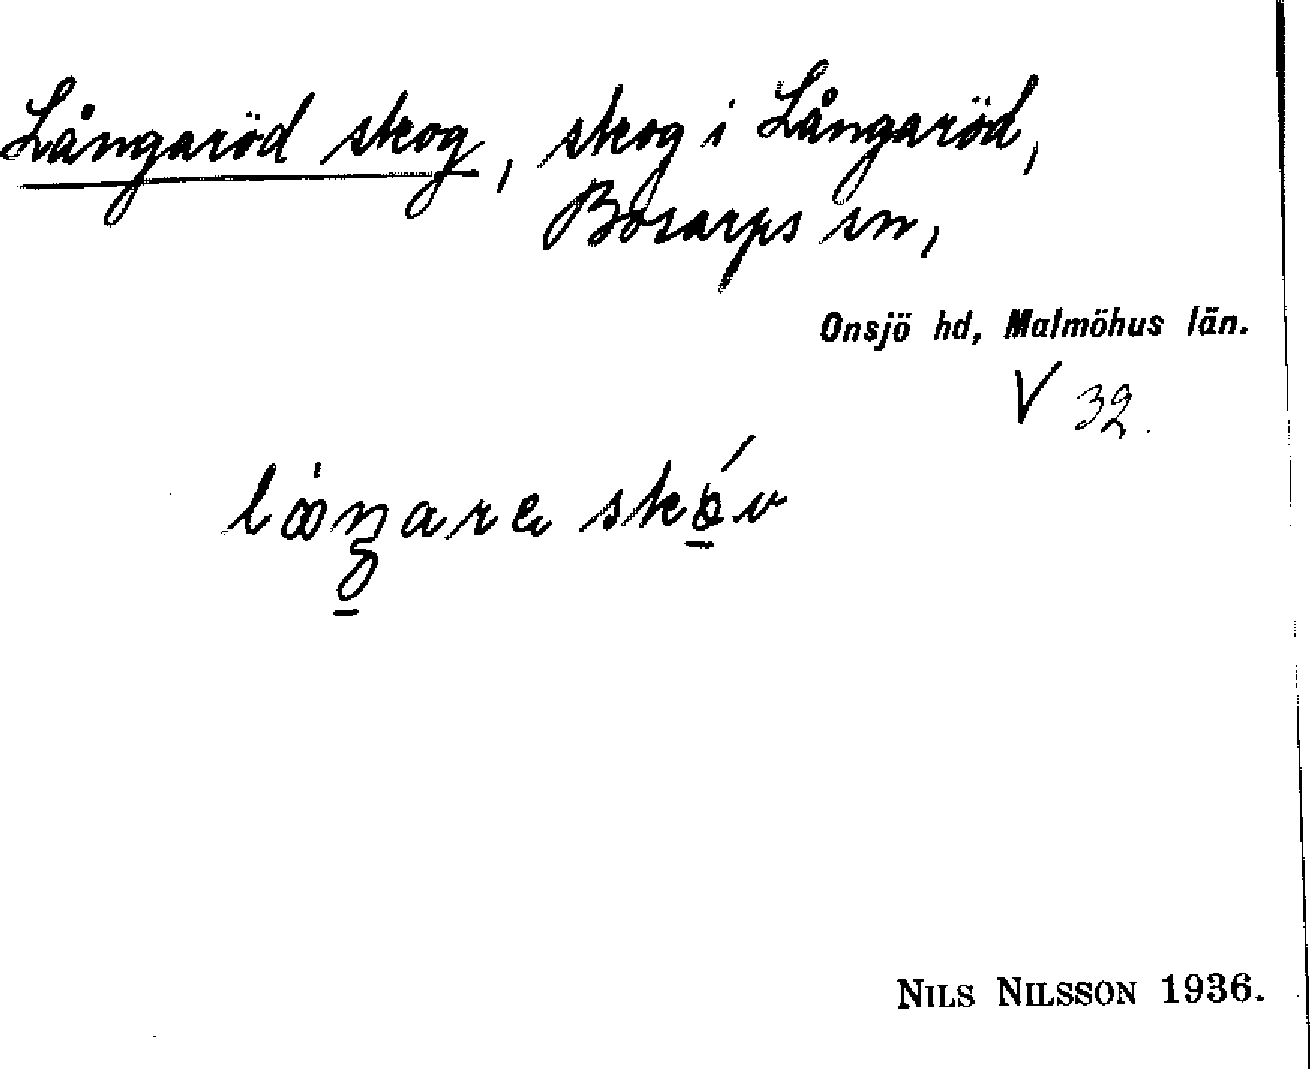 Långaröd skog, skog i Långaröd,
Bosarps sn,
Onsjö hd, Malmöhus län.
V 32.
NILS NILSSON 1936.